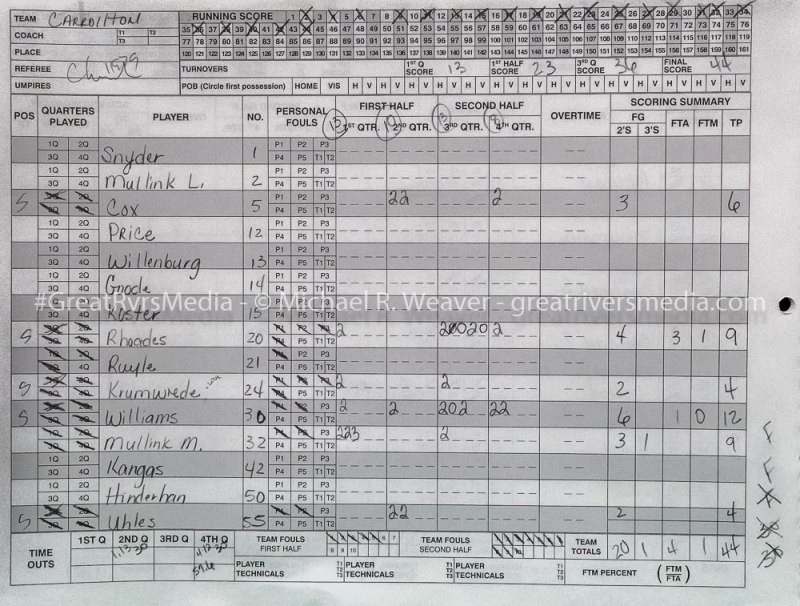 TEAM Carrollton RUNNING SCORE 1 2 3 4 5 6 7 8 9 10 11 12 13 14 15 16 17 18 19 20 21 22 23 24 25 26 27 28 29 30 31 32 33 34
COACH T1 T2 T3 35 36 37 38 39 40 41 42 43 44 45 46 47 48 49 50 51 52 53 54 55 56 57 58 59 60 61 62 63 64 65 66 67 68 69 70 71 72 73 74 75 76
PLACE 77 78 79 80 81 82 83 84 85 86 87 88 89 90 91 92 93 94 95 96 97 98 99 100 101 102 103 104 105 106 107 108 109 110 111 112 113 114 115 116 117 118 119
120 121 122 123 124 125 126 127 128 129 130 131 132 133 134 135 136 137 138 139 140 141 142 143 144 145 146 147 148 149 150 151 152 153 154 155 156 157 158 159 160 161
REFEREE TURNOVERS 1ST Q SCORE 13 1ST HALF SCORE 23 3RD Q SCORE 36 FINAL SCORE 44
UMPIRES POB (Circle first possession) HOME VIS H V H V H V H V H V H V H V H V H V H V
POS QUARTERS PLAYED PLAYER NO. PERSONAL FOULS FIRST HALF SECOND HALF OVERTIME SCORING SUMMARY
13 1ST QTR. 10 2ND QTR. 13 3RD QTR. 4TH QTR. FG 2'S 3'S FTA FTM TP
1Q 2Q 3Q 4Q Snyder 1 P1 P2 P3 P4 P5 T1 T2
1Q 2Q 3Q 4Q Mullink L. 2 P1 P2 P3 P4 P5 T1 T2
S 1Q 2Q 3Q 4Q Cox 5 P1 P2 P3 P4 P5 T1 T2 22 2 3 6
1Q 2Q 3Q 4Q Price 12 P1 P2 P3 P4 P5 T1 T2
1Q 2Q 3Q 4Q Willenburg 13 P1 P2 P3 P4 P5 T1 T2
1Q 2Q 3Q 4Q Goode 14 P1 P2 P3 P4 P5 T1 T2
#GreatRvrsMedia - © Michael R. Weaver - greatriversmedia.com
Kuster 15 P4 P5 T1 T2
S 1Q 2Q 3Q 4Q Rhoades 20 P1 P2 P3 P4 P5 T1 T2 2 20020 2 4 3 1 9
1Q 2Q 3Q 4Q Ruyle 21 P1 P2 P3 P4 P5 T1 T2
S 1Q 2Q 3Q 4Q Krumwiede 24 P1 P2 P3 P4 P5 T1 T2 2 2 2 4
S 1Q 2Q 3Q 4Q Williams 30 P1 P2 P3 P4 P5 T1 T2 2 2 202 22 6 1 0 12
1Q 2Q 3Q 4Q Mullink M. 32 P1 P2 P3 P4 P5 T1 T2 223 2 3 1 9 F
1Q 2Q 3Q 4Q Kangas 42 P1 P2 P3 P4 P5 T1 T2 F
1Q 2Q 3Q 4Q Hinderhan 50 P1 P2 P3 P4 P5 T1 T2
S 1Q 2Q 3Q 4Q Uhles 55 P1 P2 P3 P4 P5 T1 T2 22 2 4
TIME OUTS 1ST Q 2ND Q 3RD Q 4TH Q TEAM FOULS FIRST HALF 1 2 3 4 5 6 7 8 9 10 TEAM FOULS SECOND HALF TEAM TOTALS 20 1 4 1 44
PLAYER TECHNICALS T1 T2 T3 PLAYER TECHNICALS T1 T2 T3 PLAYER TECHNICALS T1 T2 T3 FTM PERCENT (FTM FTA)